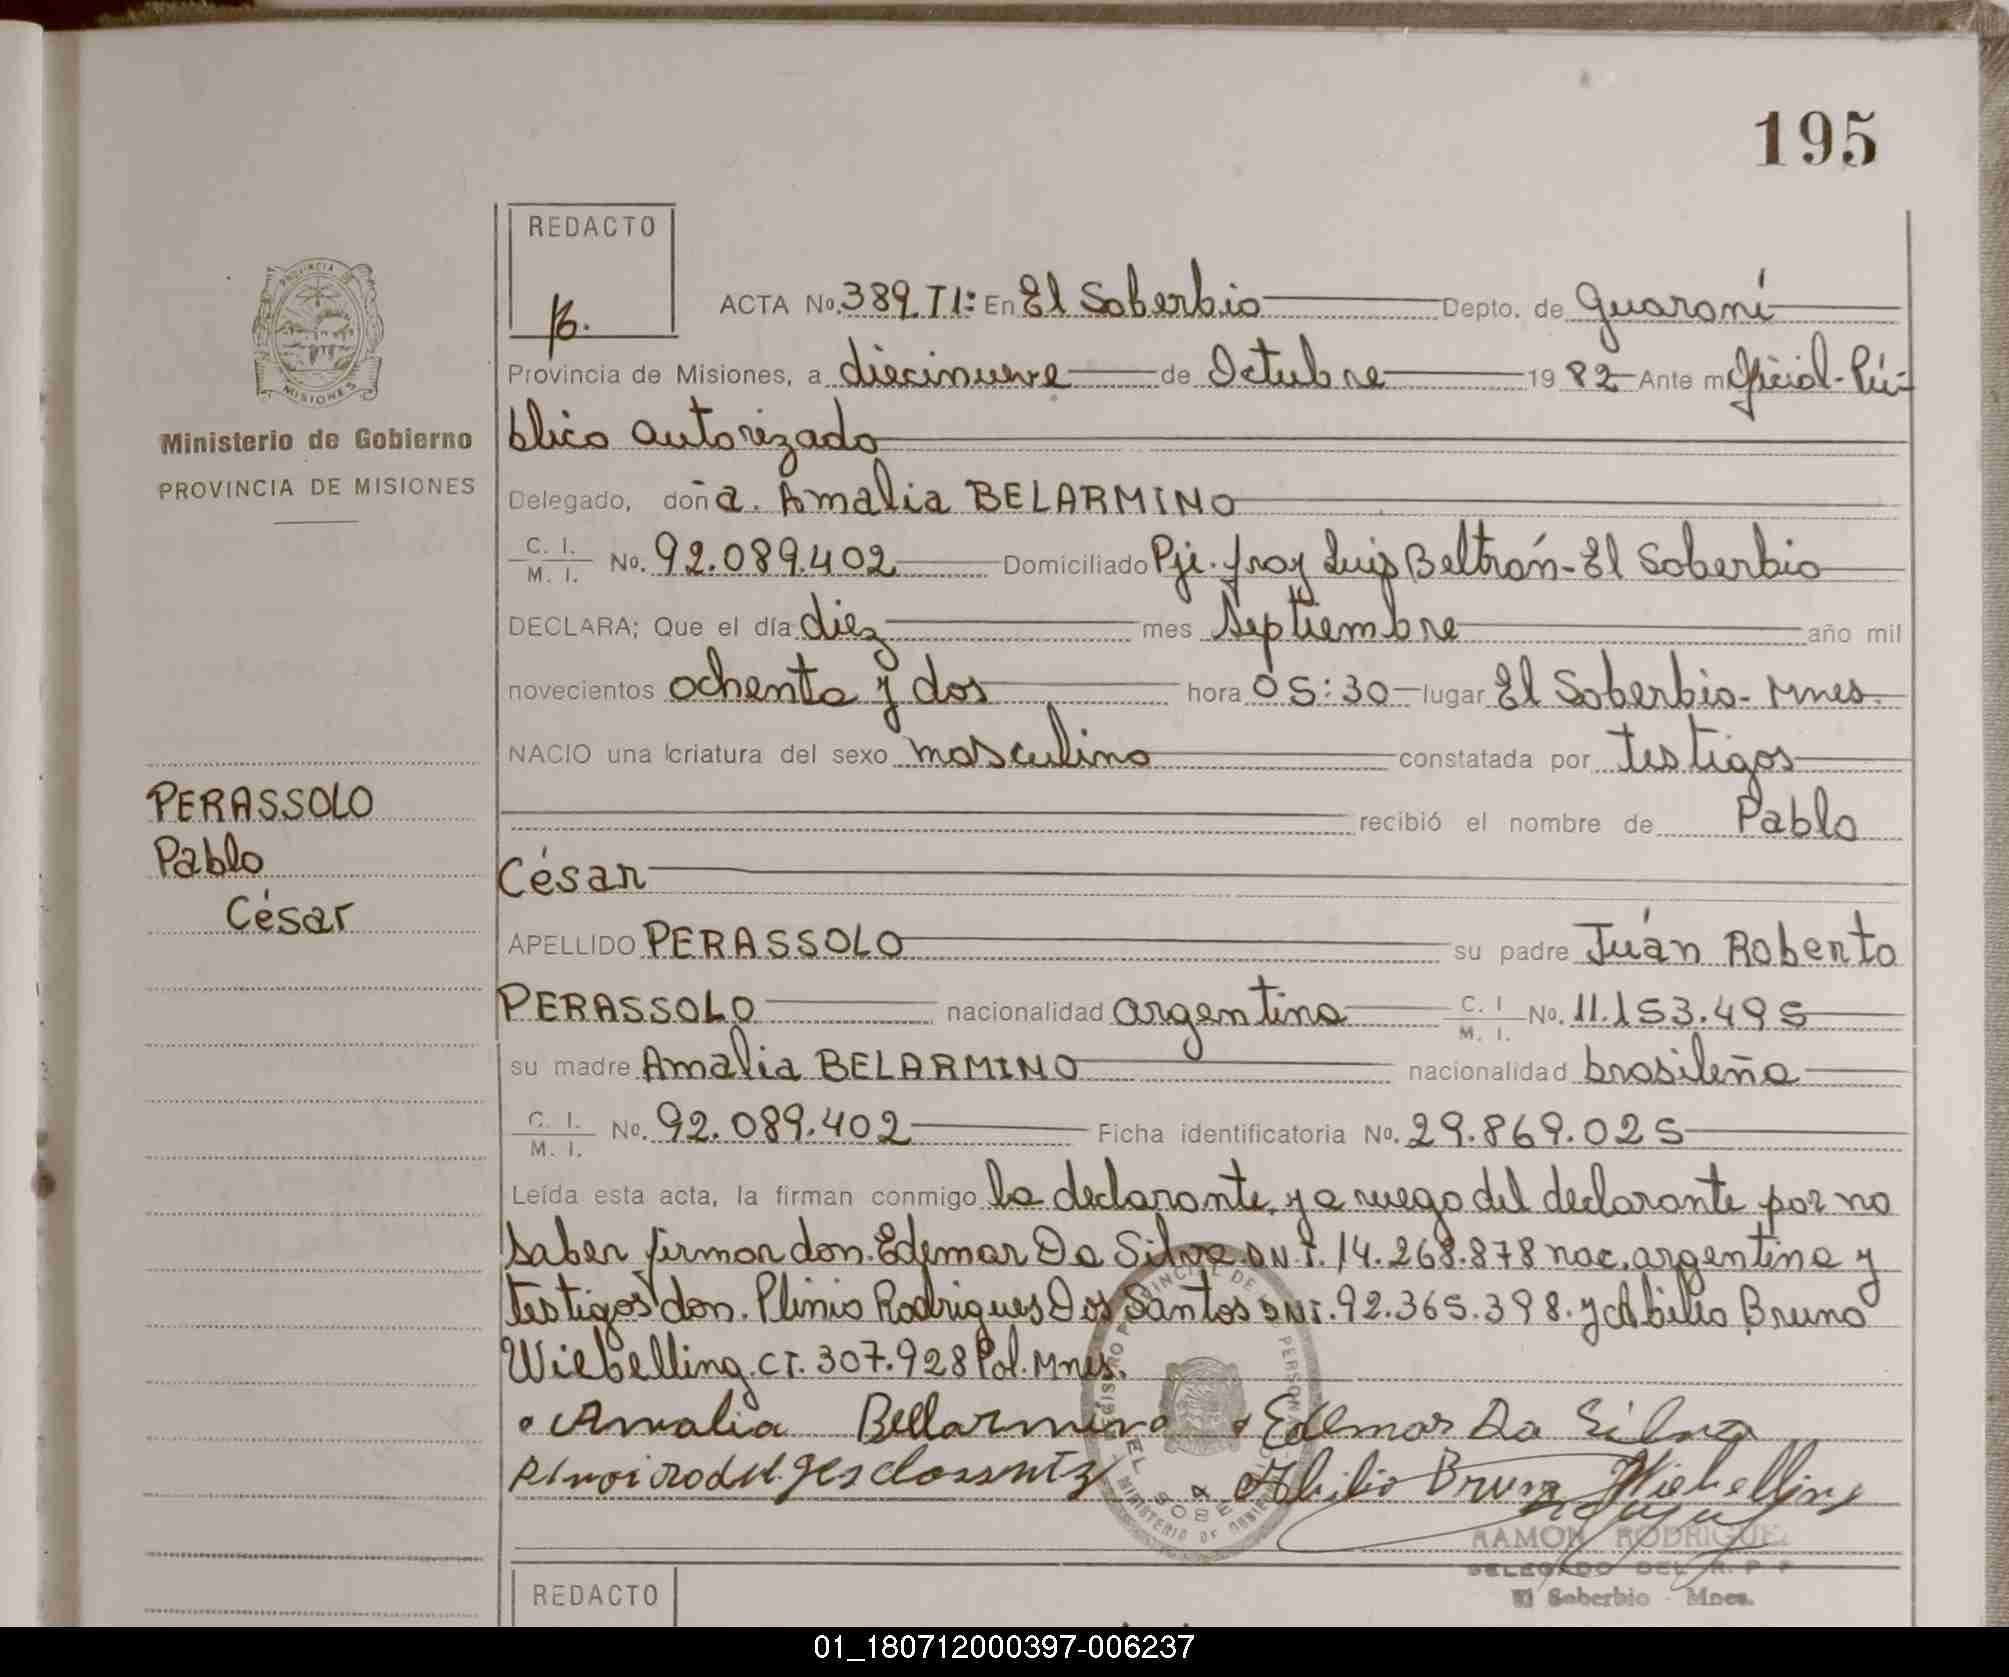 195
REDACTO
PROVINCIA DE
MISIONES
Ministerio de Gobierno
PROVINCIA DE MISIONES
ACTA No. 389 TI: En El Soberbio Depto. de Guaraní
Provincia de Misiones, a diecinueve de Octubre 19 82 Ante mi Oficial-Pú-
blico autorizado
Delegado, doña. Amalia BELARMINO
C. I. M. I. No. 92.089.402 Domiciliado Pje. fray Luis Beltrán-El Soberbio
DECLARA; Que el día diez mes Septiembre año mil
novecientos ochenta y dos hora 05:30 lugar El Soberbio-Mnes.
NACIO una criatura del sexo masculino constatada por testigos
recibió el nombre de Pablo
César
APELLIDO PERASSOLO su padre Juán Roberto
PERASSOLO nacionalidad argentina C. I. M. I. No. 11.153.495
su madre Amalia BELARMINO nacionalidad brasileña
C. I. M. I. No. 92.089.402 Ficha identificatoria No. 29.869.025
Leída esta acta, la firman conmigo la declarante, y a ruego del declarante por no
saber firmar don. Edemar Da Silva DNI. 14.268.878 nac. argentina y
testigos don. Plinio Rodrigues Dos Santos DNI. 92.365.398. y Abilio Bruno
Wiebelling. CI. 307.928 Pol. Mnes.
PERASSOLO
Pablo
César
Amalia Bellarmino Edemar Da Silva
Abilio Bruno Wiebelling
RAMON RODRIGUEZ
DELEGADO DEL R. P. P.
El Soberbio - Mnes.
REDACTO
01_180712000397-006237